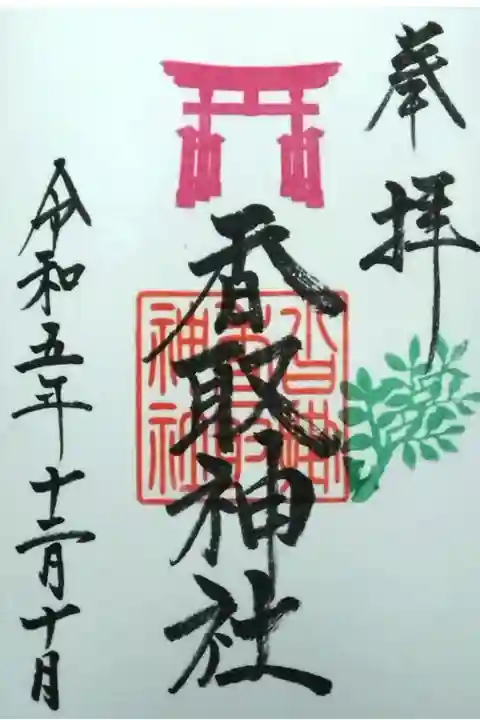 奉拝
香取神社
令和五年十二月十日
沓掛
香取
神社